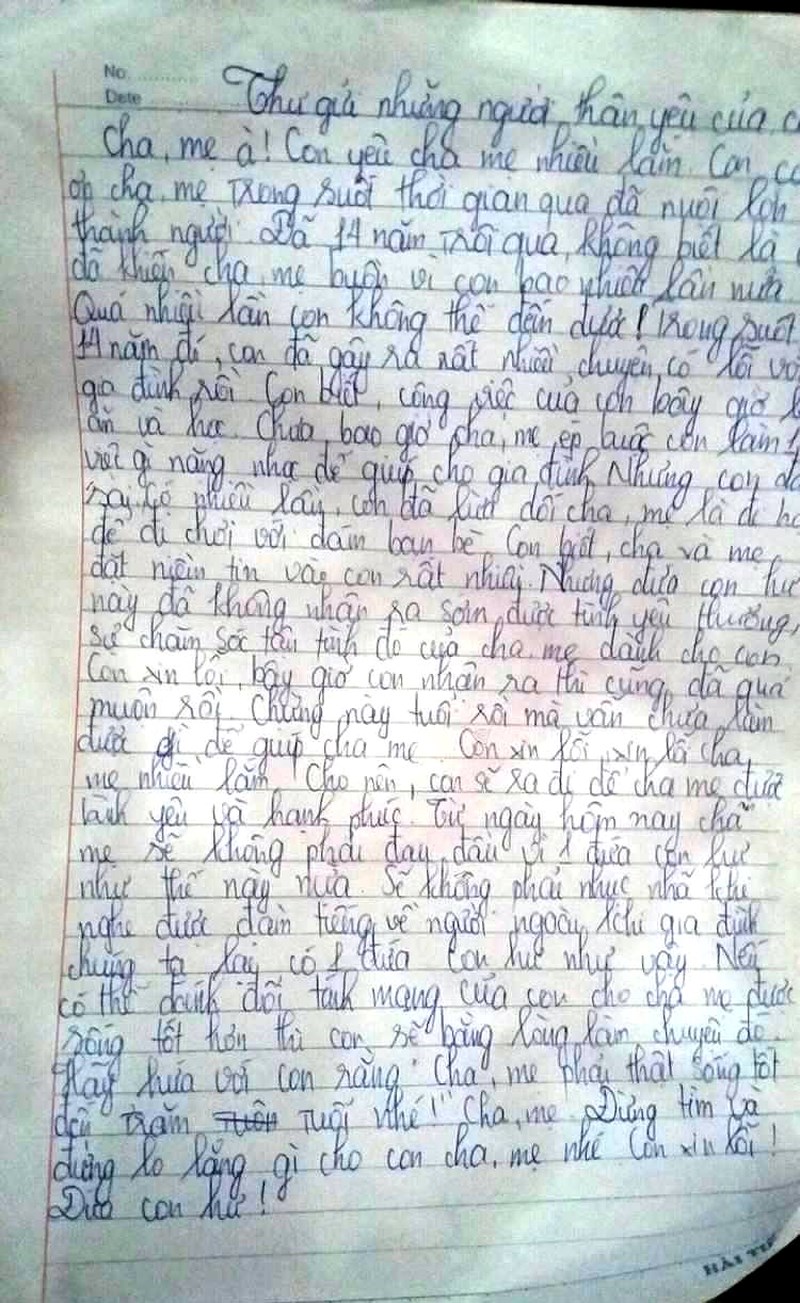 No
Date
Thư gửi những người thân yêu của
Cha, mẹ à! Con yêu cha mẹ nhiều lắm. Con
ơn cha, mẹ trong suốt thời gian qua đã nuôi lớn
thành người. Đã 14 năm trôi qua, không biết là
đã khiến cha, mẹ buồn vì con bao nhiêu lần nữa
Quá nhiều lần con không thể đếm được! Trong suốt
14 năm đó, con đã gây ra rất nhiều chuyện có lỗi với
gia đình rồi. Con biết, công việc của con bây giờ
ăn và học. Chưa bao giờ cha, mẹ ép buộc con làm 1
việc gì nặng nhọc để giúp cho gia đình. Nhưng con
có nhiều lần, con đã lừa dối cha, mẹ là đi
để đi chơi với đám bạn bè. Con biết, cha và mẹ
đặt niềm tin vào con rất nhiều. Nhưng đứa con hư
này đã không nhận ra sớm được tình yêu thương,
sự chăm sóc tận tình đó của cha mẹ dành cho con.
Con xin lỗi, bây giờ con nhận ra thì cũng đã quá
muộn rồi. Chừng này tuổi rồi mà vẫn chưa làm
được gì để giúp cha mẹ. Con xin lỗi, xin lỗi cha,
mẹ nhiều lắm. Cho nên, con sẽ ra đi để cha mẹ được
yên và hạnh phúc. Từ ngày hôm nay cha
mẹ sẽ không phải đau đầu vì 1 đứa con hư
như thế này nữa. Sẽ không phải nhục nhã khi
nghe được đàm tiếng về người ngoài khi gia đình
chúng ta lại có 1 đứa con hư như vậy. Nếu
có thể đánh đổi tính mạng của con cho cha mẹ được
sống tốt hơn thì con sẽ bằng lòng làm chuyện đó.
Hãy hứa với con rằng "Cha, mẹ phải thật sống tốt
đến trăm tuổi nhé!" Cha, mẹ. Đừng tìm và
đừng lo lắng gì cho con cha, mẹ nhé. Con xin lỗi!
Đứa con hư!
HẢI